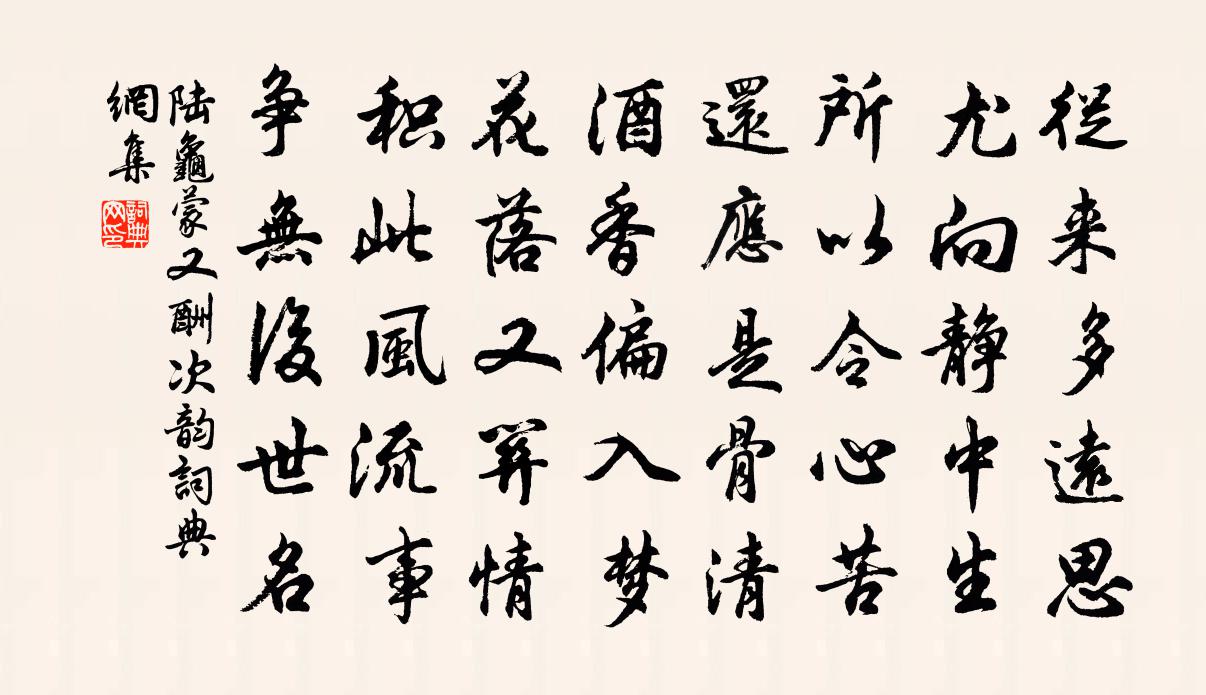 從来多遠思
尤向静中生
所以令心苦
還應是骨清
酒香偏入梦
花落又關情
积此風流事
争無後世名
陸龜蒙又酬次韵詞典
網集
詞典
网印